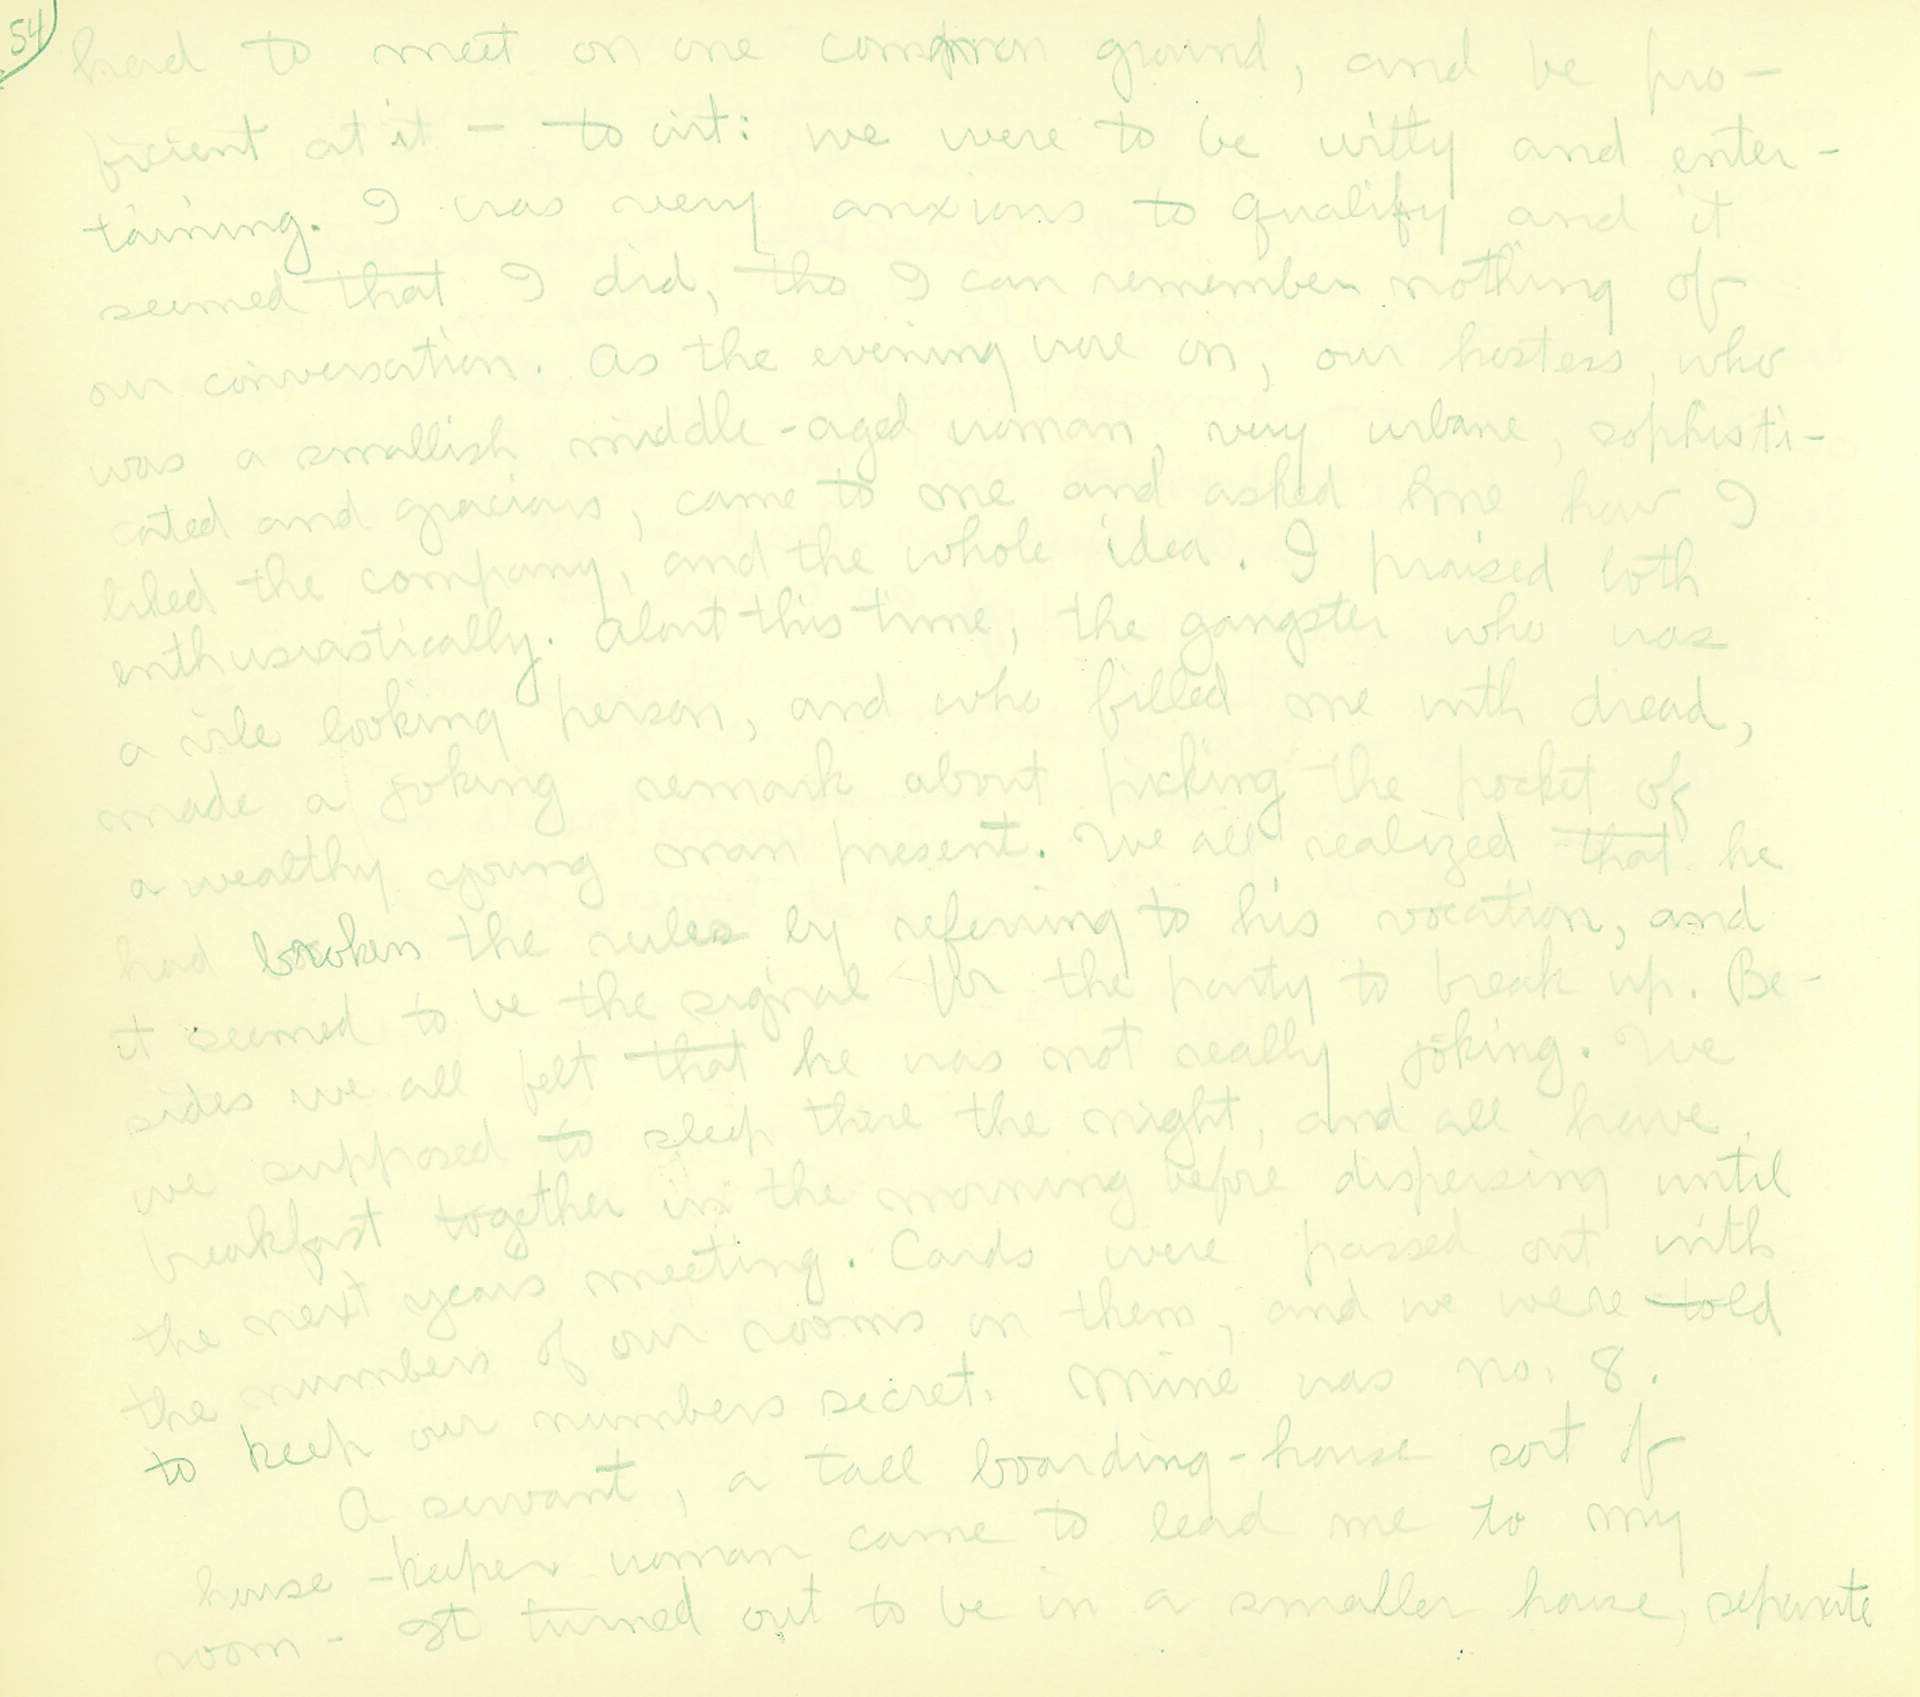 54
had to meet on one common ground, and be pro-
ficient at it - to wit: we were to be witty and enter-
taining. I was very anxious to qualify and it
seemed that I did, tho I can remember nothing of
our conversation. As the evening wore on, our hostess, who
was a smallish middle-aged woman, very urbane, sophisti-
cated and gracious, came to me and asked me how I
liked the company, and the whole idea. I praised both
enthusiastically. About this time, the gangster who was
a vile looking person, and who filled me with dread,
made a joking remark about picking the pocket of
a wealthy young man present. We all realized that he
had broken the rules by referring to his vocation, and
it seemed to be the signal for the party to break up. Be-
sides we all felt that he was not really joking. We
we supposed to sleep there the night, and all have
breakfast together in the morning before dispersing until
the next years meeting. Cards were passed out with
the numbers of our rooms on them, and we were told
to keep our numbers secret. Mine was no. 8.
A servant, a tall boarding-house sort of
house-keeper woman came to lead me to my
room - It turned out to be in a smaller house, separate